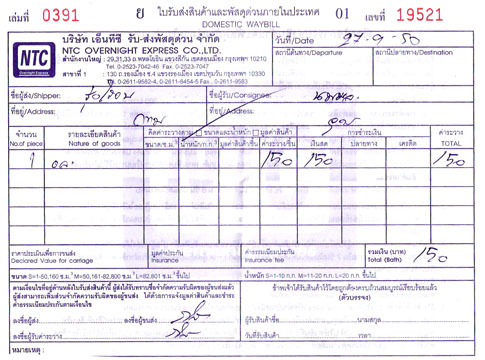 เล่มที่ 0391 ย ใบรับส่งสินค้าและพัสดุด่วนภายในประเทศ 01 เลขที่ 19521
DOMESTIC WAYBILL
NTC
บริษัท เอ็นทีซี รับ-ส่งพัสดุด่วน จำกัด
NTC OVERNIGHT EXPRESS CO.,LTD.
วันที่/Date 27-9-50
สำนักงานใหญ่ : 29,31,33 ถ.พหลโยธิน แขวงสีกัน เขตดอนเมือง กรุงเทพฯ 10210
Tel. 0-2523-7042-46 Fax. 0-2523-7047
สาขาที่ 1 : 130 ถ.รองเมือง ซ.4 แขวงรองเมือง เขตปทุมวัน กรุงเทพฯ 10330
0-2611-9582-3, 0-2611-6454-5 Fax. 0-2611-9583
สถานีต้นทาง/Departure สถานีปลายทาง/Destination
ชื่อผู้ส่ง/Shipper: ชื่อผู้รับ/Consignee:
ที่อยู่/Address: ที่อยู่/Address:
จำนวน รายละเอียดสินค้า คิดค่าระวางตาม ขนาดและน้ำหนัก มูลค่าสินค้า การชำระเงิน ค่าระวาง
No.of piece Nature of goods ขนาด/ซ.ม. น้ำหนัก/ก.ก. มูลค่าสินค้า ค่าระวาง/ชิ้น เงินสด ปลายทาง เครดิต TOTAL
1 150 150 150
ราคาประเมินเพื่อการขนส่ง มูลค่าประกัน ค่าธรรมเนียมประกัน รวมเงิน (บาท) 150
Declared Value for carriage Insurance Insurance fee Total (Baht)
ขนาด S=1-50,160 ซ.ม. M=50,161-82,800 ซ.ม. L=82,801 ซ.ม. ขึ้นไป น้ำหนัก S=1-10 ก.ก. M=11-20 ก.ก. L=20 ก.ก. ขึ้นไป
ตามเงื่อนไขที่อยู่ด้านหลังใบรับส่งสินค้านี้ ผู้ส่งได้รับทราบชื่อจำกัดความรับผิดของผู้ขนส่งแล้ว
ผู้ส่งสามารถเพิ่มส่วนจำกัดความรับผิดของผู้ขนส่ง ได้ด้วยการแจ้งมูลค่าสินค้าและชำระ
ค่าธรรมเนียมประกันตามเงื่อนไข
ข้าพเจ้าได้รับสินค้าไว้โดยถูกต้องครบถ้วนสมบูรณ์เรียบร้อยแล้ว
(ตัวบรรจง)
ลงชื่อผู้ส่ง ลงชื่อผู้ขนส่ง ชื่อผู้รับสินค้า นามสกุล
ลงชื่อผู้รับค่าระวาง วันที่รับสินค้า เวลา
หมายเหตุ :